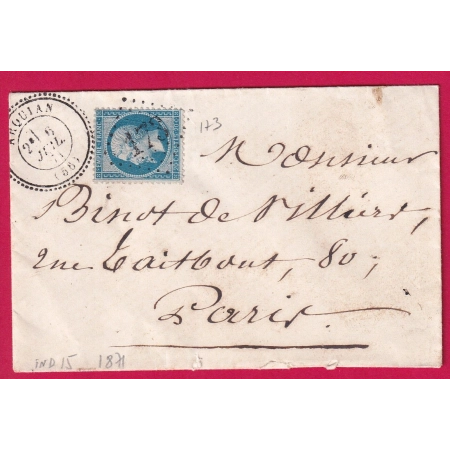 ARQUIAN
2E
6
JUIL.
(56)
173
173
Monsieur
Binot de Villiers,
rue Taitbout, 80,
Paris.
IND 15 1871